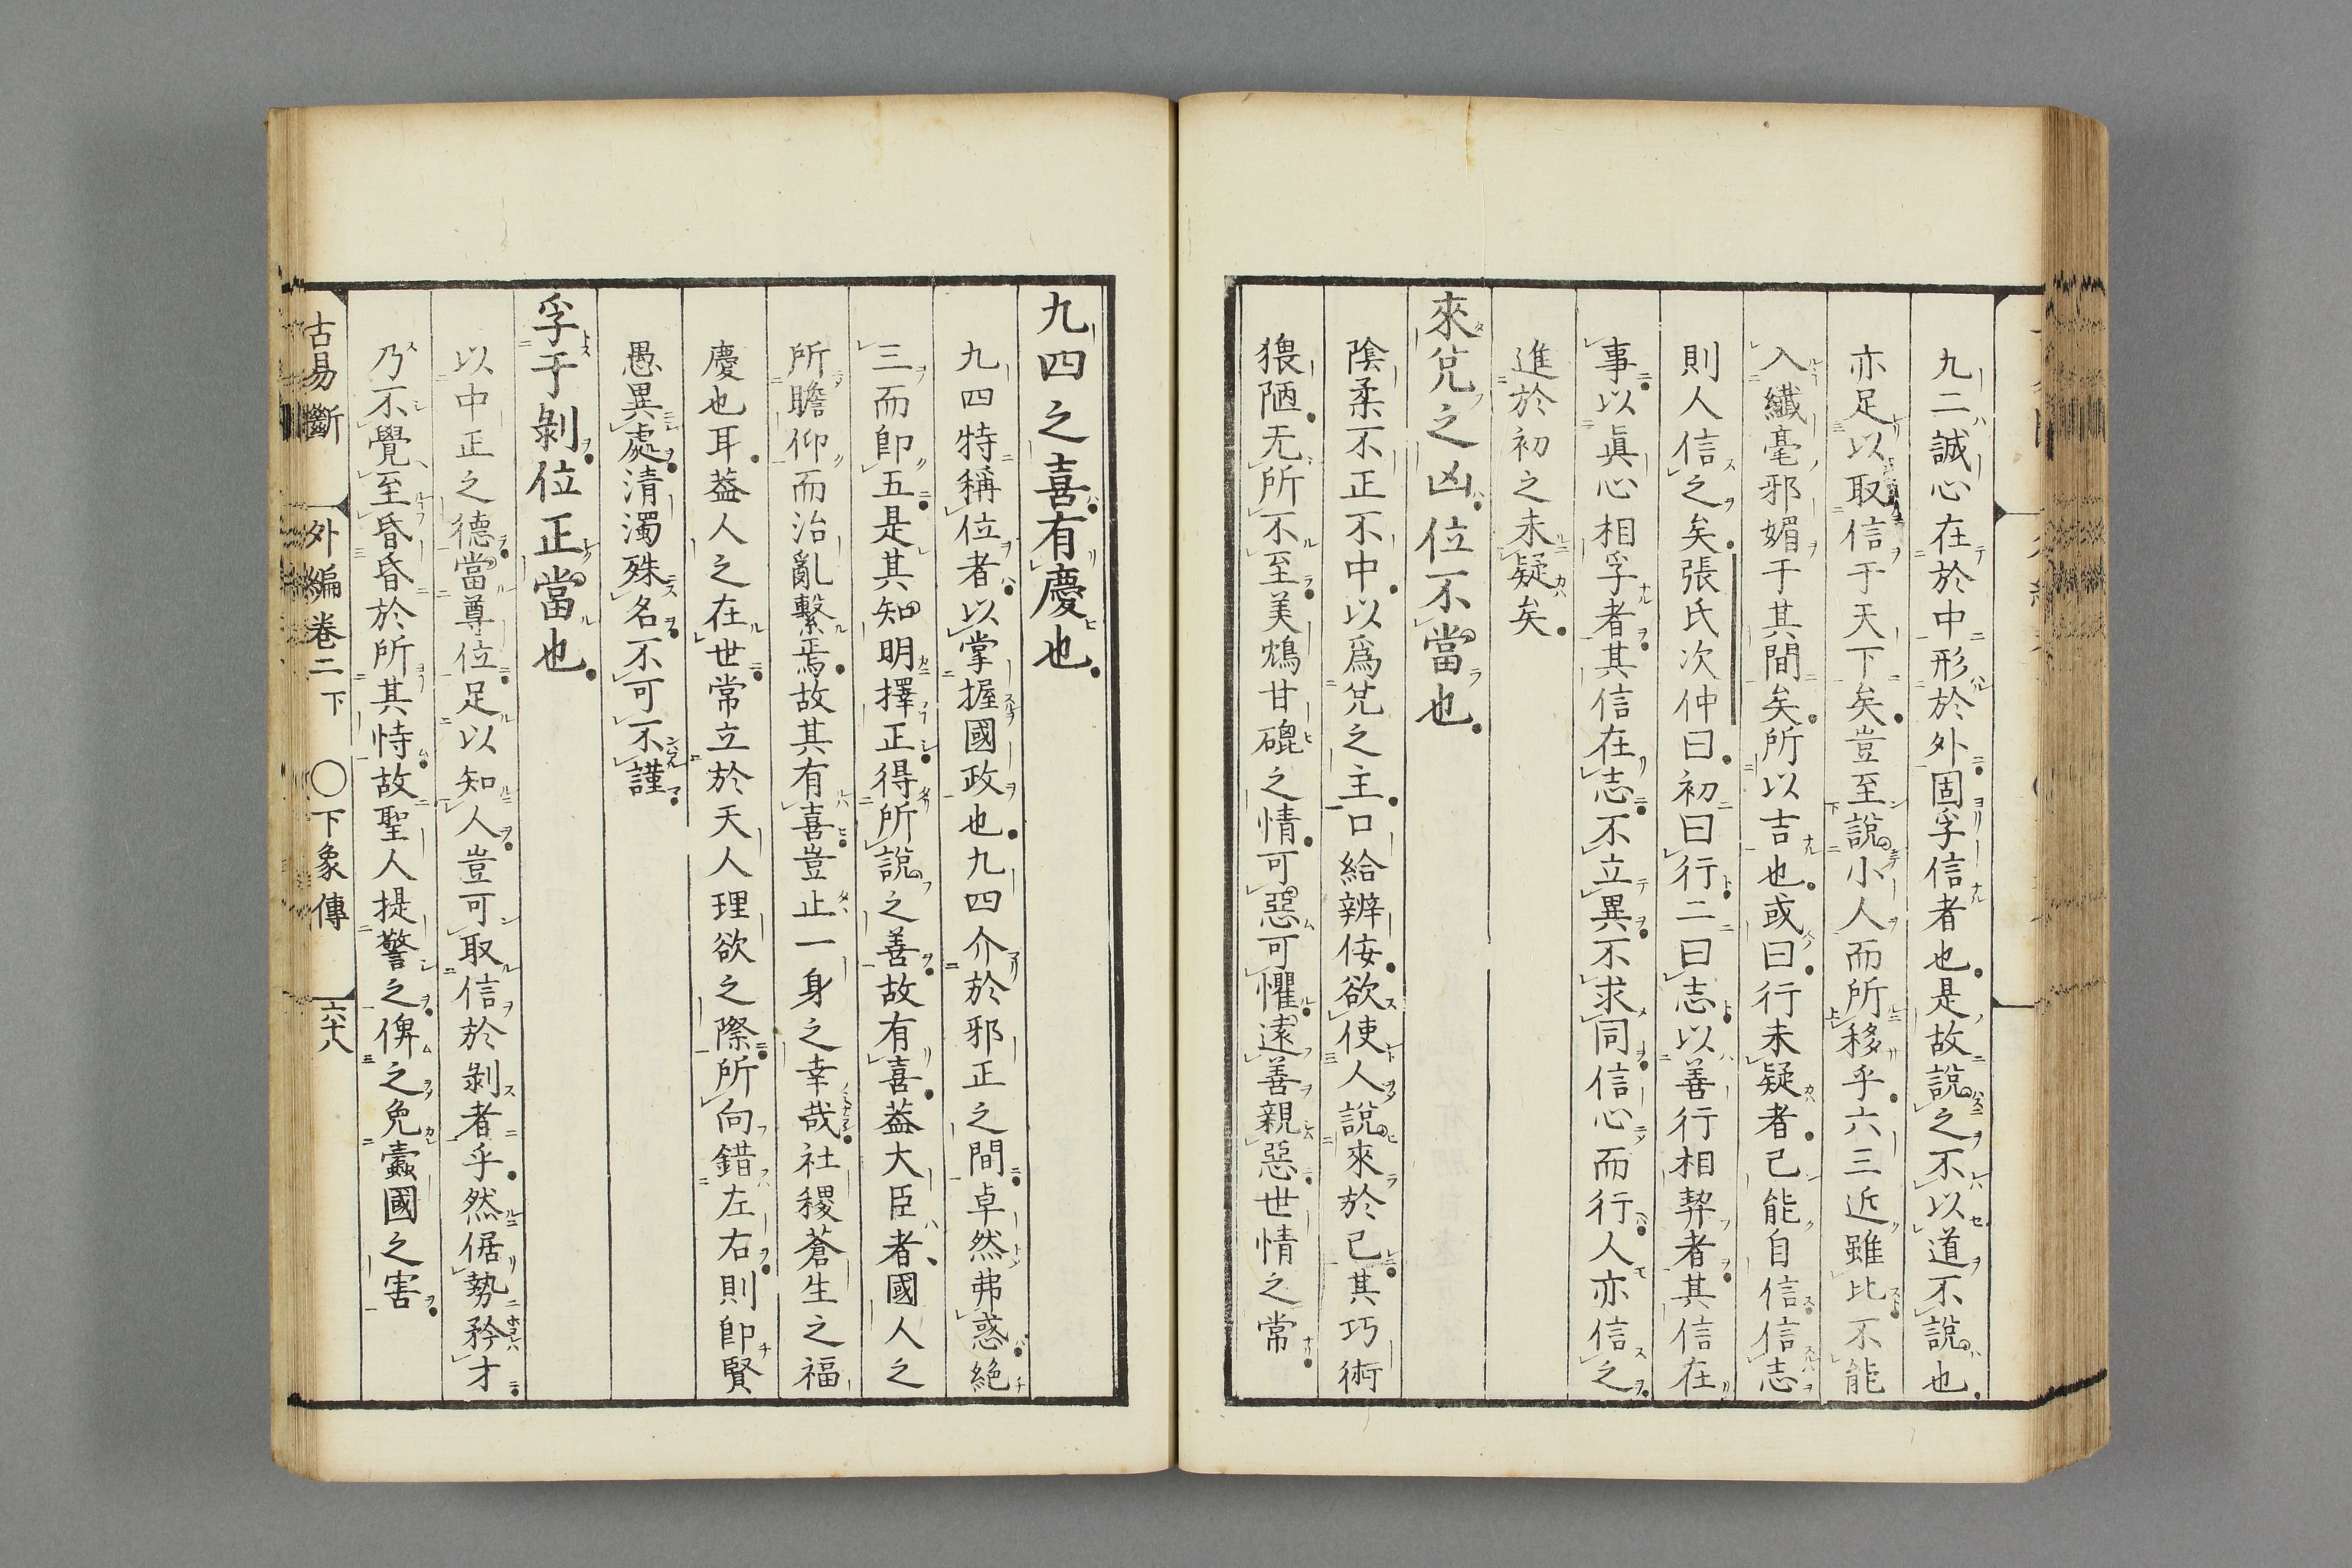 九二誠心在於中形於外固孚信者也是故說之不以道不說也
亦足以取信于天下矣豈至說小人而所移乎六三近雖比不能
入纖毫邪媚于其間矣所以吉也或曰行未疑者己能自信信志
則人信之矣張氏次仲曰初曰行二曰志以善行相契者其信在
事以眞心相孚者其信在志不立異不求同信心而行人亦信之
進於初之未疑矣
來兌之凶位不當也
陰柔不正不中以爲兌之主口給辨佞欲使人說來於己其巧術
猥陋无所不至美鴆甘磇之情可惡可懼遠善親惡世情之常
九四之喜有慶也
九四特稱位者以掌握國政也九四介於邪正之間卓然弗惑絕
三而卽五是其知明擇正得所說之善故有喜葢大臣者國人之
所瞻仰而治亂繫焉故其有喜豈止一身之幸哉社稷蒼生之福
慶也耳葢人之在世常立於天人理欲之際所向錯左右則卽賢
愚異處清濁殊名不可不謹
孚于剝位正當也
以中正之德當尊位足以知人豈可取信於剝者乎然倨勢矜才
乃不覺至昏昏於所其恃故聖人提警之俾之免蠹國之害
古易斷 外編卷二下 ○下象傳 六十八